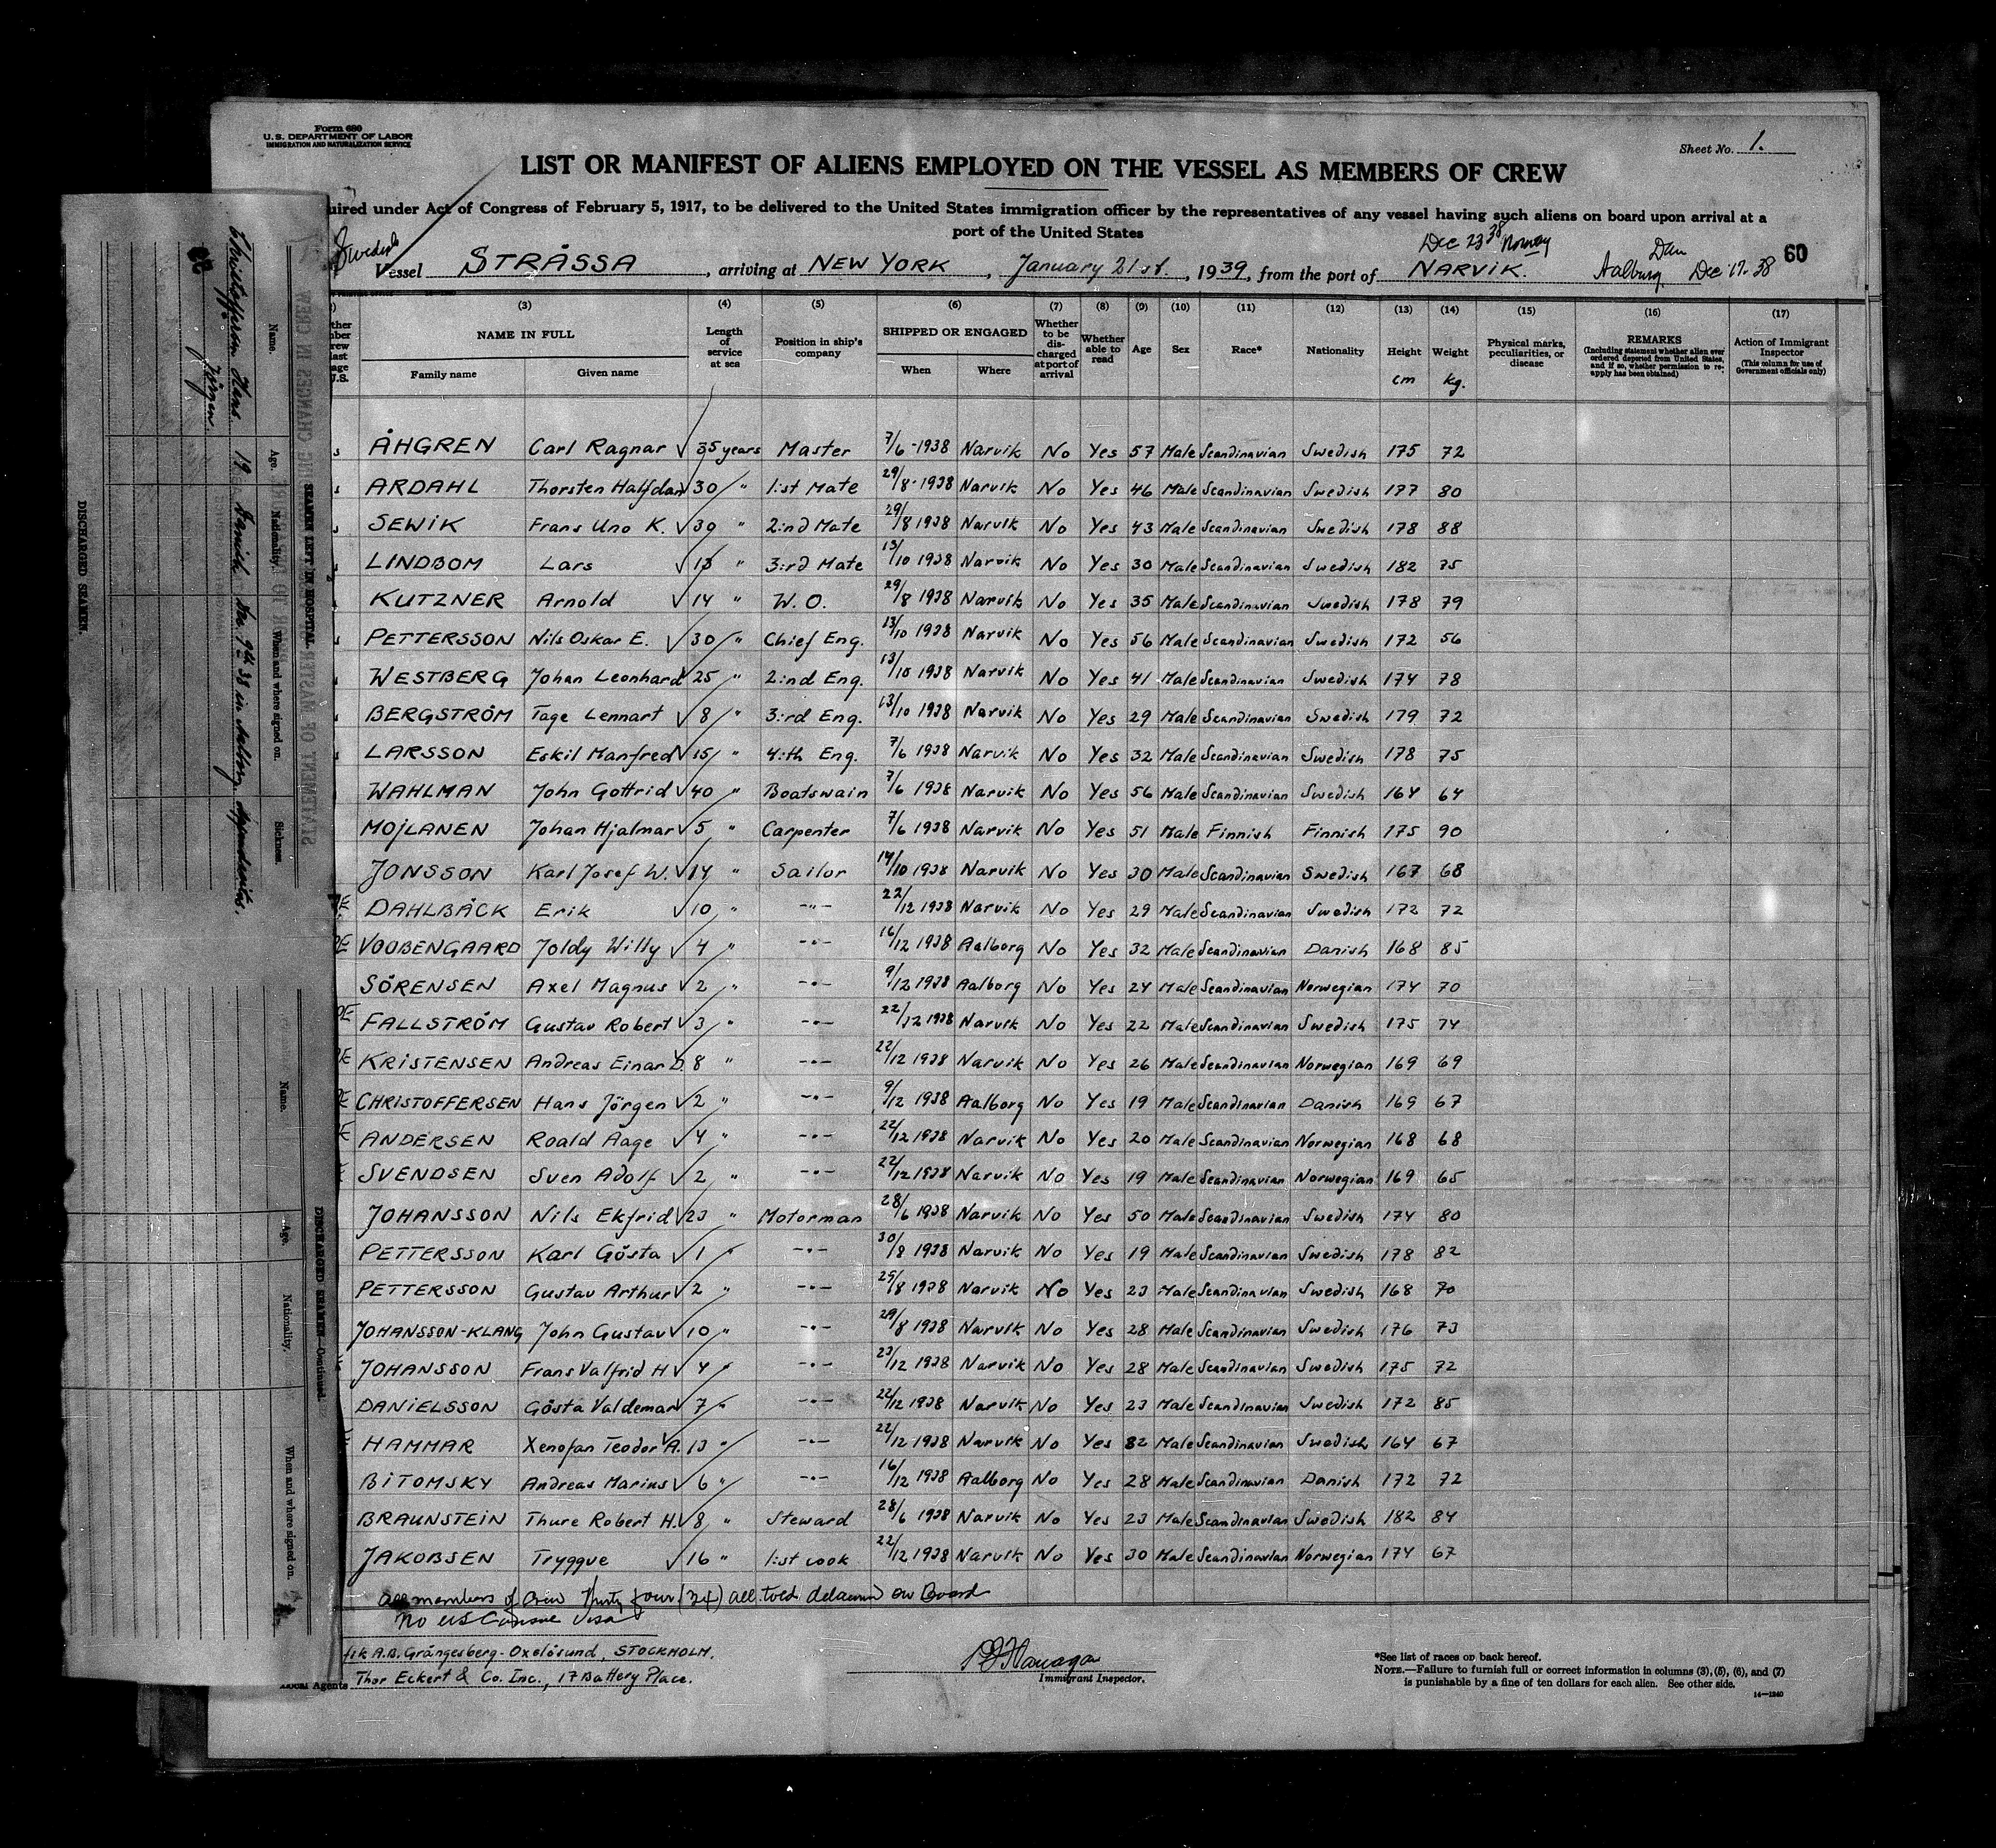 Form 680
U. S. DEPARTMENT OF LABOR
IMMIGRATION AND NATURALIZATION SERVICE
Sheet No. 1.
LIST OR MANIFEST OF ALIENS EMPLOYED ON THE VESSEL AS MEMBERS OF CREW
uired under Act of Congress of February 5, 1917, to be delivered to the United States immigration officer by the representatives of any vessel having such aliens on board upon arrival at a
port of the United States
Dec 23 38 Norway
Swedish Vessel STRÅSSA, arriving at NEW YORK, January 21st, 1939, from the port of NARVIK. Aalburg, Den Dec 17-38 60
(3) (4) (5) (6) (7) (8) (9) (10) (11) (12) (13) (14) (15) (16) (17)
NAME IN FULL Length of service at sea Position in ship's company SHIPPED OR ENGAGED Whether to be discharged at port of arrival Whether able to read Age Sex Race* Nationality Height cm Weight kg. Physical marks, peculiarities, or disease REMARKS (Including statement whether alien ever ordered deported from United States, and if so, whether permission to reapply has been obtained) Action of Immigrant Inspector (This column for use of Government officials only)
Family name Given name When Where
ÅHGREN Carl Ragnar 35 years Master 7/6-1938 Narvik No Yes 57 Male Scandinavian Swedish 175 72
ARDAHL Thorsten Halfdan 30 " 1:st Mate 29/8-1938 Narvik No Yes 46 Male Scandinavian Swedish 177 80
SEWIK Frans Uno K. 30 " 2:nd Mate 29/8 1938 Narvik No Yes 43 Male Scandinavian Swedish 178 88
LINDBOM Lars 13 " 3:rd Mate 13/10 1938 Narvik No Yes 30 Male Scandinavian Swedish 182 75
KUTZNER Arnold 14 " W. O. 29/8 1938 Narvik No Yes 35 Male Scandinavian Swedish 178 79
PETTERSSON Nils Oskar E. 30 " Chief Eng. 13/10 1938 Narvik No Yes 56 Male Scandinavian Swedish 172 56
WESTBERG Johan Leonhard 25 " 2:nd Eng. 13/10 1938 Narvik No Yes 41 Male Scandinavian Swedish 174 78
BERGSTRÖM Tage Lennart 8 " 3:rd Eng. 13/10 1938 Narvik No Yes 29 Male Scandinavian Swedish 179 72
LARSSON Eskil Manfred 15 " 4:th Eng. 7/6 1938 Narvik No Yes 32 Male Scandinavian Swedish 178 75
WAHLMAN John Gottfrid 40 " Boatswain 7/6 1938 Narvik No Yes 56 Male Scandinavian Swedish 164 64
MOJLANEN Johan Hjalmar 5 " Carpenter 7/6 1938 Narvik No Yes 51 Male Finnish Finnish 175 90
JONSSON Karl Josef W. 14 " Sailor 14/10 1938 Narvik No Yes 30 Male Scandinavian Swedish 167 68
DAHLBÄCK Erik 10 " -"- 22/12 1938 Narvik No Yes 29 Male Scandinavian Swedish 172 72
VOOBENGAARD Joldy Willy 4 " -"- 16/12 1938 Aalborg No Yes 32 Male Scandinavian Danish 168 85
SÖRENSEN Axel Magnus 2 " -"- 9/12 1938 Aalborg No Yes 24 Male Scandinavian Norwegian 174 70
FALLSTRÖM Gustav Robert 3 " -"- 22/12 1938 Narvik No Yes 22 Male Scandinavian Swedish 175 74
KRISTENSEN Andreas Einar D. 8 " -"- 22/12 1938 Narvik No Yes 26 Male Scandinavian Norwegian 169 69
CHRISTOFFERSEN Hans Jörgen 2 " -"- 9/12 1938 Aalborg No Yes 19 Male Scandinavian Danish 169 67
ANDERSEN Roald Aage 4 " -"- 22/12 1938 Narvik No Yes 20 Male Scandinavian Norwegian 168 68
SVENDSEN Sven Adolf 2 " -"- 22/12 1938 Narvik No Yes 19 Male Scandinavian Norwegian 169 65
JOHANSSON Nils Ekfrid 23 " Motorman 28/6 1938 Narvik No Yes 50 Male Scandinavian Swedish 174 80
PETTERSSON Karl Gösta 1 " -"- 30/8 1938 Narvik No Yes 19 Male Scandinavian Swedish 178 82
PETTERSSON Gustav Arthur 2 " -"- 29/8 1938 Narvik No Yes 23 Male Scandinavian Swedish 168 70
JOHANSSON-KLANG John Gustav 10 " -"- 29/8 1938 Narvik No Yes 28 Male Scandinavian Swedish 176 73
JOHANSSON Frans Valfrid H 4 " -"- 23/12 1938 Narvik No Yes 28 Male Scandinavian Swedish 175 72
DANIELSSON Gösta Valdemar 7 " -"- 22/12 1938 Narvik No Yes 23 Male Scandinavian Swedish 172 85
HAMMAR Xenofan Teodor A. 13 " -"- 22/12 1938 Narvik No Yes 32 Male Scandinavian Swedish 164 67
BITOMSKY Andreas Marius 6 " -"- 16/12 1938 Aalborg No Yes 28 Male Scandinavian Danish 172 72
BRAUNSTEIN Thure Robert H. 8 " Steward 28/6 1938 Narvik No Yes 23 Male Scandinavian Swedish 182 84
JAKOBSEN Tryggve 16 " 1:st cook 22/12 1938 Narvik No Yes 30 Male Scandinavian Norwegian 174 67
all members of Crew thirty four (34) all told on Board
No US Consul Visa
fik A.B. Grängesberg-Oxelösund, STOCKHOLM.
Local Agents Thor Eckert & Co. Inc., 17 Battery Place.
Immigrant Inspector.
*See list of races on back hereof.
NOTE.—Failure to furnish full or correct information in columns (3), (5), (6), and (7)
is punishable by a fine of ten dollars for each alien. See other side.
14—1240
STATEMENT OF CHANGES IN CREW
SEAMEN LEFT IN HOSPITAL
Name. Age. Nationality. When and where signed on. Sickness.
Christofferson Hans Jörgen 19 Danish Dec. 9th 38 in Aalborg. Appendicitus.
DISCHARGED SEAMEN.
DISCHARGED SEAMEN—Continued.
Name. Age. Nationality. When and where signed on.